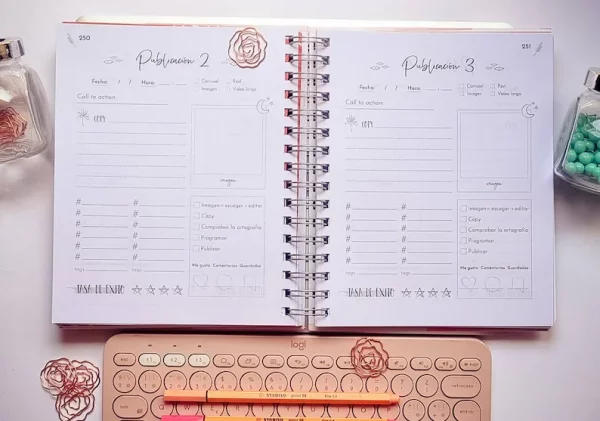 250
Publicación 2
Fecha: / / Hora: __:__
Carrusel
Reel
Imagen
Video largo
Call to action:
COPY
imagen
# #
# #
# #
# #
# #
tags:
Imagen - escoger - editar
Copy
Comprobar la ortografía
Programar
Publicar
Me gusta Comentarios Guardados
TASA DE ÉXITO
251
Publicación 3
Fecha: / / Hora: __:__
Carrusel
Reel
Imagen
Video largo
Call to action:
COPY
imagen
# #
# #
# #
# #
# #
tags:
Imagen - escoger - editar
Copy
Comprobar la ortografía
Programar
Publicar
Me gusta Comentarios Guardados
TASA DE ÉXITO
logi
STABILO